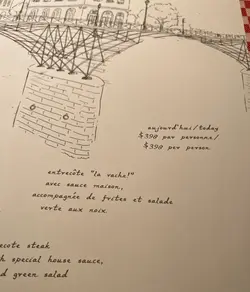 aujourd'hui/today
$398 par personne/
$398 per person
entrecôte "la vache!"
avec sauce maison,
accompagnée de frites et salade
verte aux noix
ecote steak
h special house sauce,
d green salad